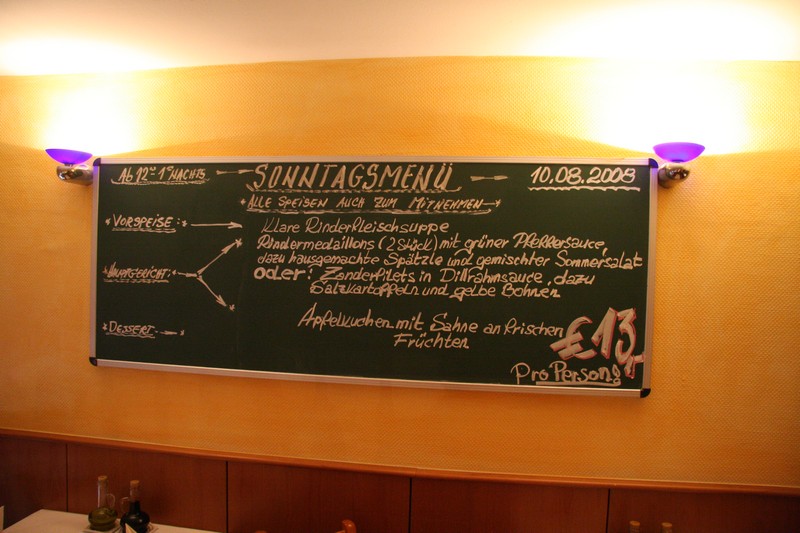 Ab 12°° 1°° NACHTS
SONNTAGSMENÜ
10.08.2008
* ALLE SPEISEN AUCH ZUM MITNEHMEN
* VORSPEISE: *
Klare Rinderfleischsuppe
Rindermedaillons (2 Stück) mit grüner Pfeffersauce,
dazu hausgemachte Spätzle und gemischter Sommersalat
* HAUPTGERICHT: *
oder: Zanderfilets in Dillrahmsauce, dazu
Salzkartoffeln und gelbe Bohnen
* DESSERT
Apfelkuchen mit Sahne an frischen
Früchten
€ 13,
Pro Person